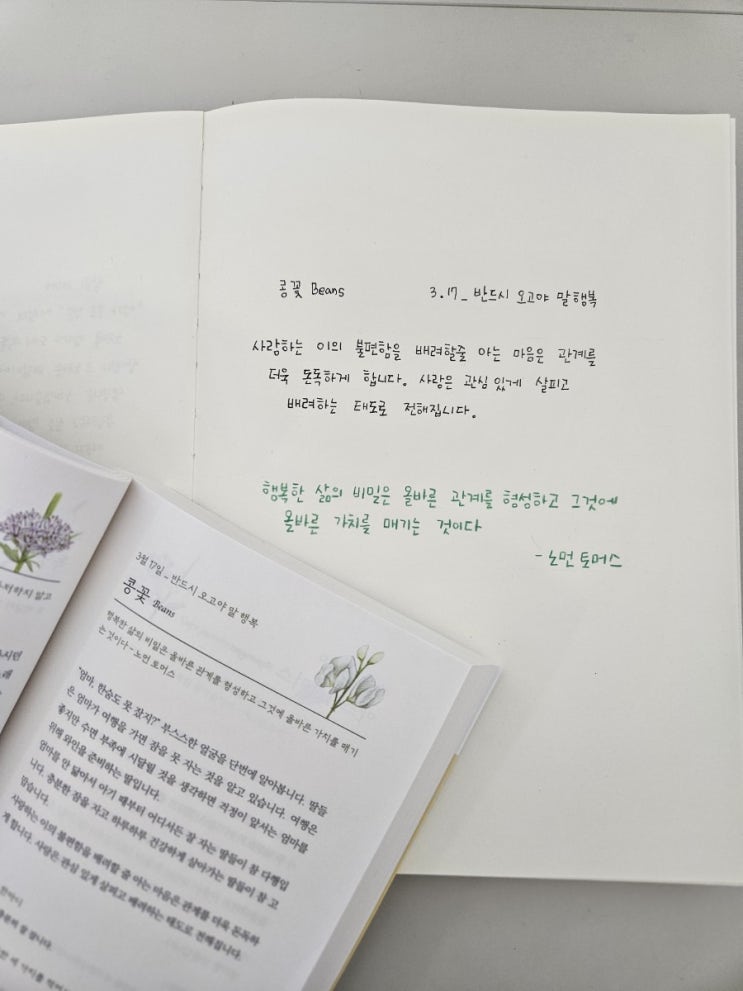 콩꽃 Beans 3.17_ 반드시 오고야 말 행복
사랑하는 이의 불편함을 배려할줄 아는 마음은 관계를
더욱 돈독하게 합니다. 사랑은 관심 있게 살피고
배려하는 태도로 전해집니다.
행복한 삶의 비밀은 올바른 관계를 형성하고 그것에
올바른 가치를 매기는 것이다
- 노먼 토머스
3월 17일_반드시 오고야 말 행복
콩꽃 Beans
행복한 삶의 비밀은 올바른 관계를 형성하고 그것에 올바른 가치를 매기
는 것이다 - 노먼 토머스
"엄마, 한숨도 못 잤지?" 부스스한 얼굴을 단번에 알아봅니다. 딸들
은 엄마가 여행을 가면 잠을 못 자는 것을 알고 있습니다. 여행은
좋지만 수면 부족에 시달릴 것을 생각하면 걱정이 앞서는 엄마를
위해 와인을 준비하는 딸입니다.
엄마를 안 닮아서 아기 때부터 어디서든 잘 자는 딸들이 참 다행입
니다. 충분한 잠을 자고 하루하루 건강하게 살아가는 딸들이 참 고
맙습니다.
사랑하는 이의 불편함을 배려할 줄 아는 마음은 관계를 더욱 돈독하
게 합니다. 사랑은 관심 있게 살피고 배려하는 태도로 전해집니다.